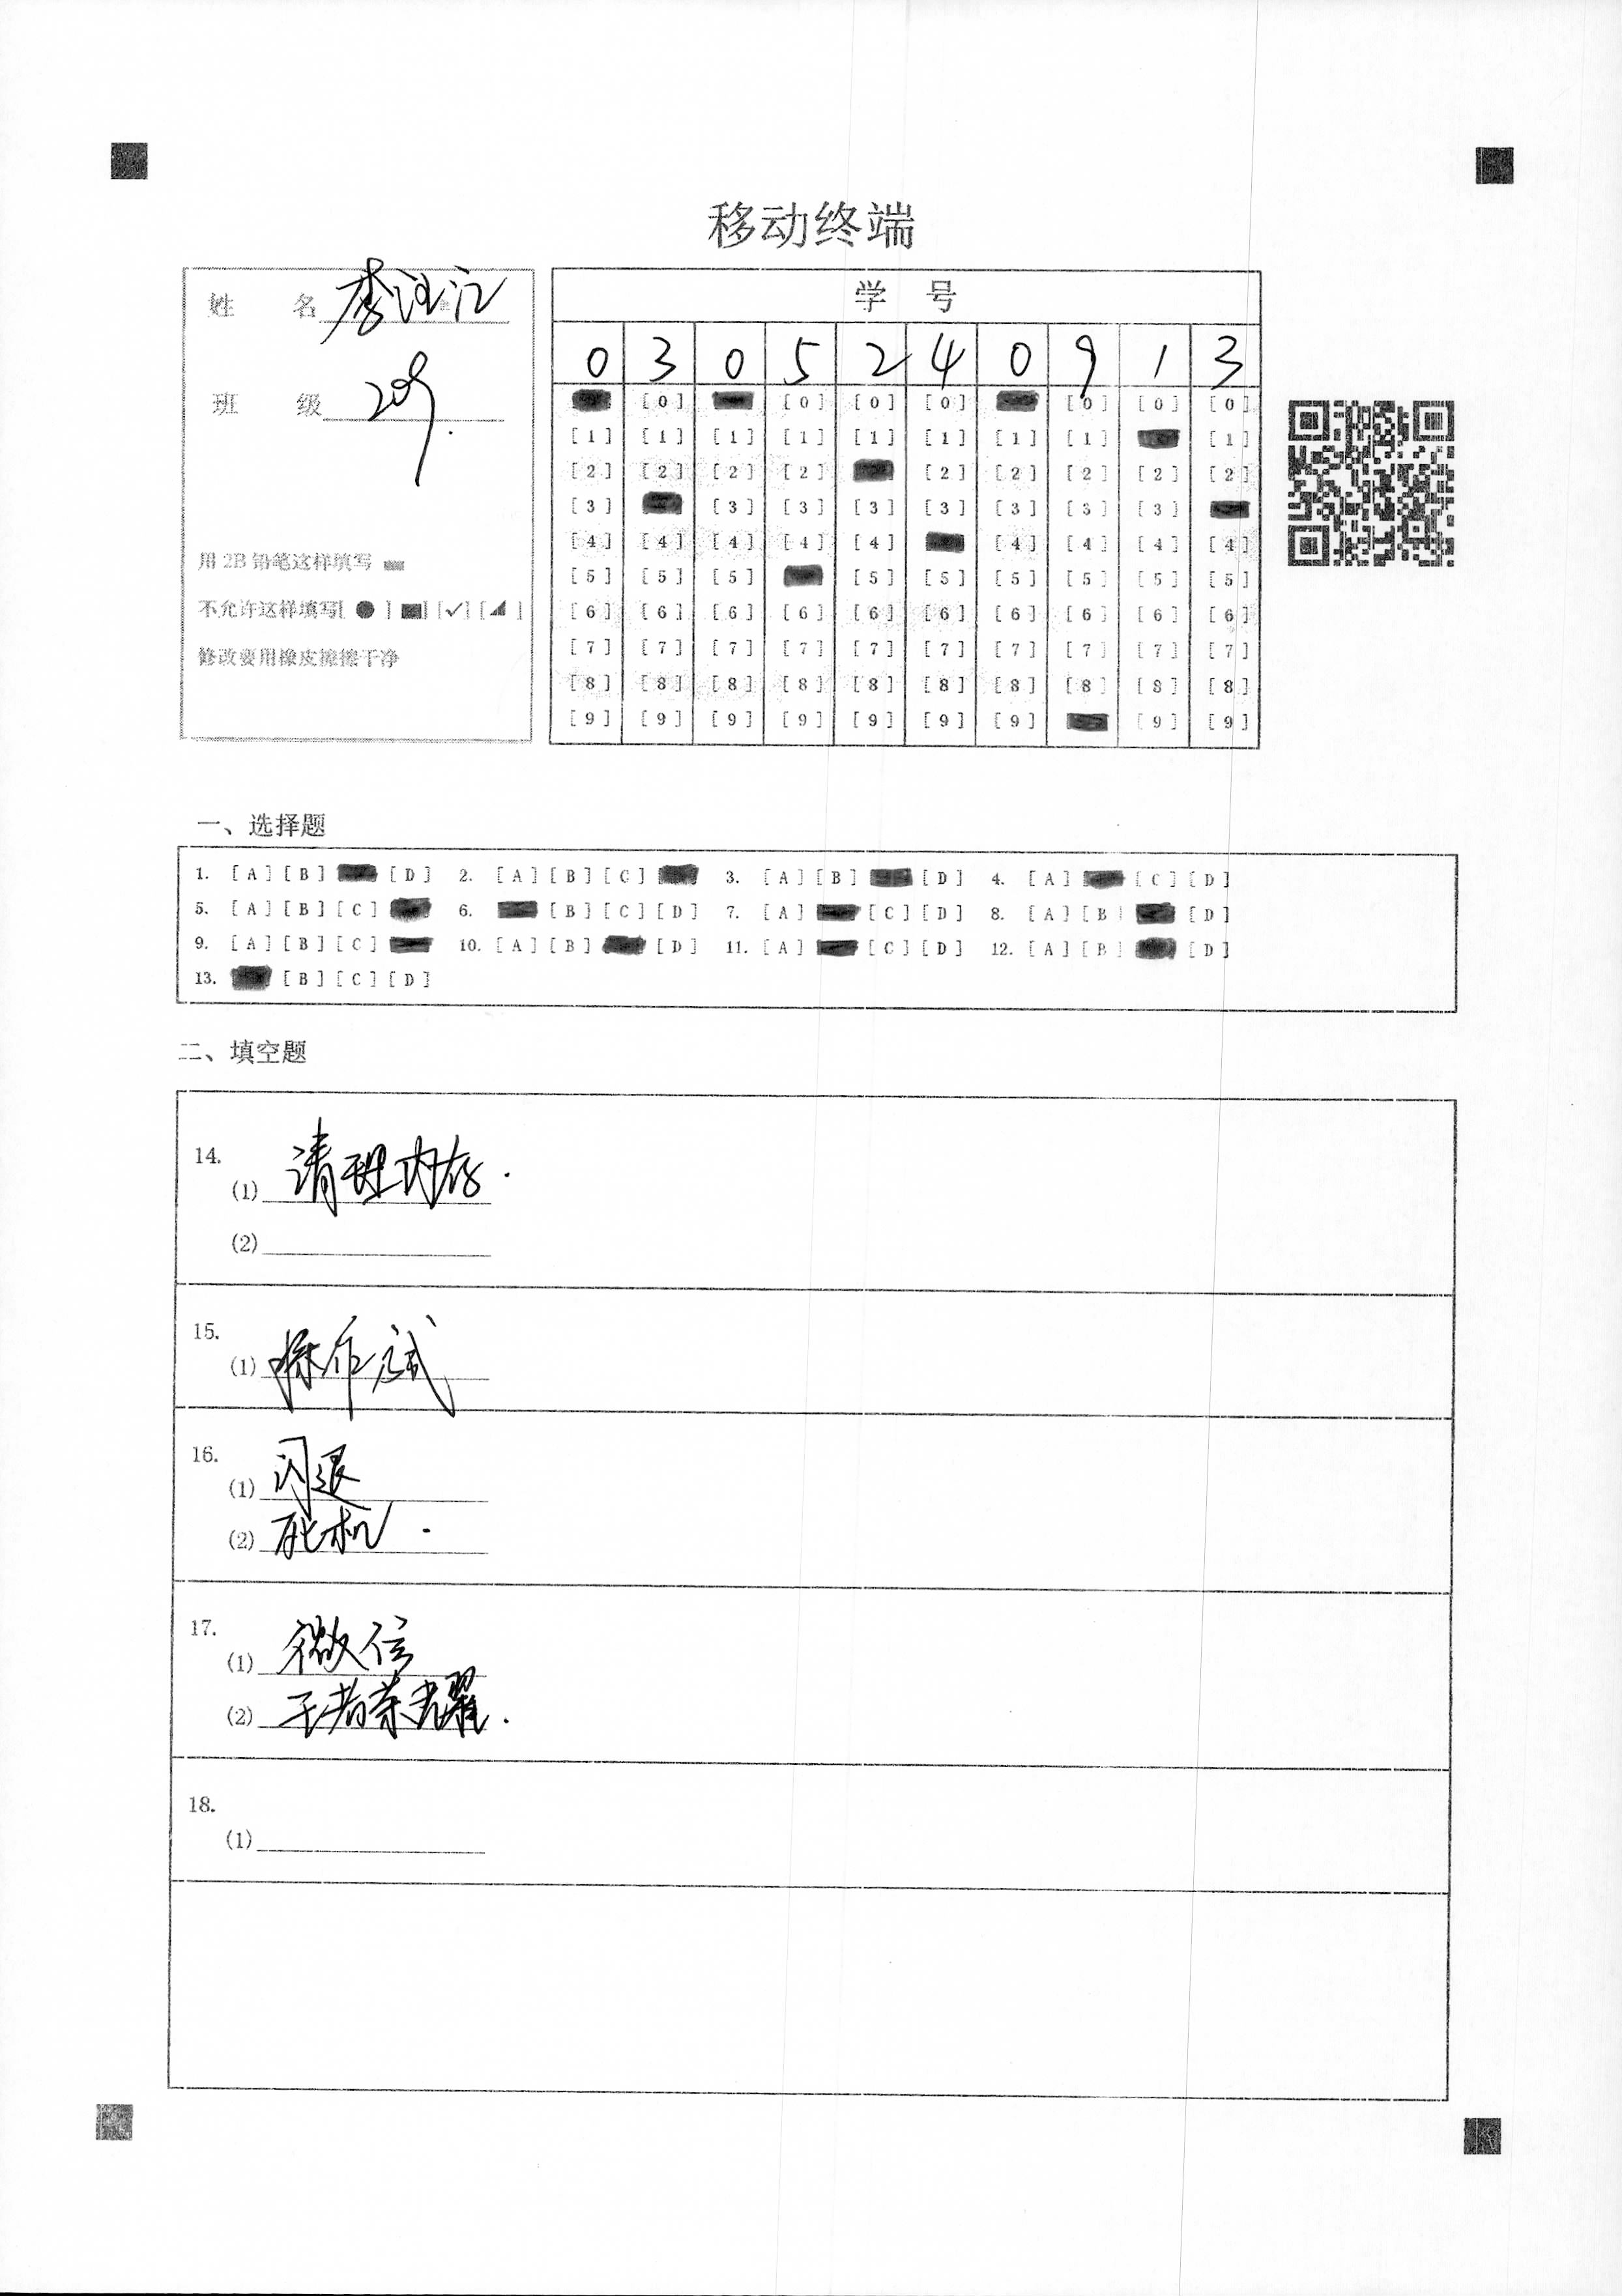 移动终端
姓 名 李江江
班 级 209.
用 2B 铅笔这样填写
不允许这样填写[ ● ] [■] [✓] [◢ ]
修改要用橡皮擦擦干净
学 号
0 3 0 5 2 4 0 9 1 3
[0] [0] [0] [0] [0] [0] [0]
[1] [1] [1] [1] [1] [1] [1] [1] [1]
[2] [2] [2] [2] [2] [2] [2] [2] [2]
[3] [3] [3] [3] [3] [3] [3] [3]
[4] [4] [4] [4] [4] [4] [4] [4] [4]
[5] [5] [5] [5] [5] [5] [5] [5] [5]
[6] [6] [6] [6] [6] [6] [6] [6] [6] [6]
[7] [7] [7] [7] [7] [7] [7] [7] [7] [7]
[8] [8] [8] [8] [8] [8] [8] [8] [8] [8]
[9] [9] [9] [9] [9] [9] [9] [9] [9]
一、选择题
1. [A] [B] [D] 2. [A] [B] [C] 3. [A] [B] [D] 4. [A] [C] [D]
5. [A] [B] [C] 6. [B] [C] [D] 7. [A] [C] [D] 8. [A] [B] [D]
9. [A] [B] [C] 10. [A] [B] [D] 11. [A] [C] [D] 12. [A] [B] [D]
13. [B] [C] [D]
二、填空题
14.
(1) 清理内存.
(2)
15.
(1)
16.
(1) 闪退
(2) 死机.
17.
(1) 微信
(2) 王者荣耀.
18.
(1)